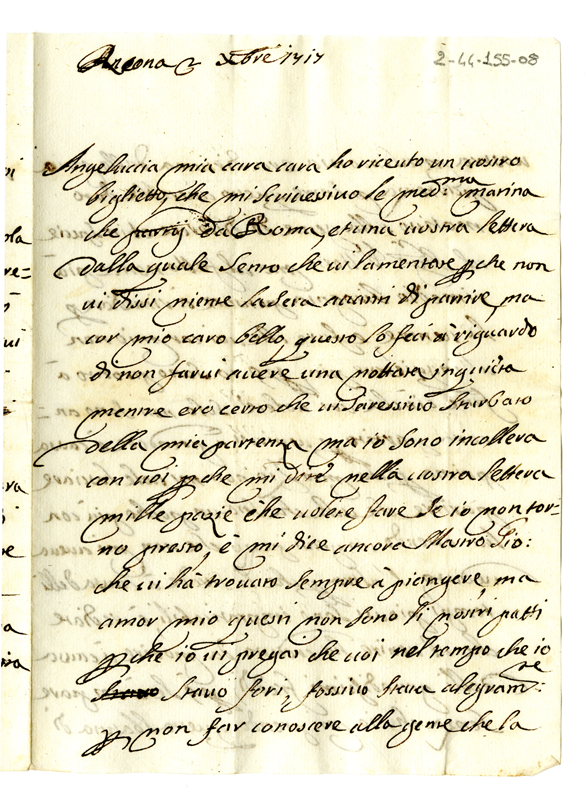 Ancona 2 Xbre 1717
2-44-155-08
Angeluccia mia cara cara ho riceuto un vostro
biglietto, che mi scrivessivo le med:ma matina
che partij da Roma, et una vostra lettera
dalla quale sento che vi lamentate p che non
vi dissi niente la sera avanti di partire, ma
cor mio caro bello, questo lo feci à riguardo
di non farvi avere una nottata inquieta
mentre ero certo che vi saressivo sturbato
della mia partenza ma io sono incollera
con voi p che mi dite nella vostra lettera
mille pazie che volete fare se io non tor=
no presto, è mi dice ancora Mastro Gio:
che vi hà trovato sempre à piangere, ma
amor mio questi non sono li nostri patti
p che io vi pregai che voi nel tempo che io
stavo fori, fossivo stata alegram:te
p non far conoscere alla gente che la